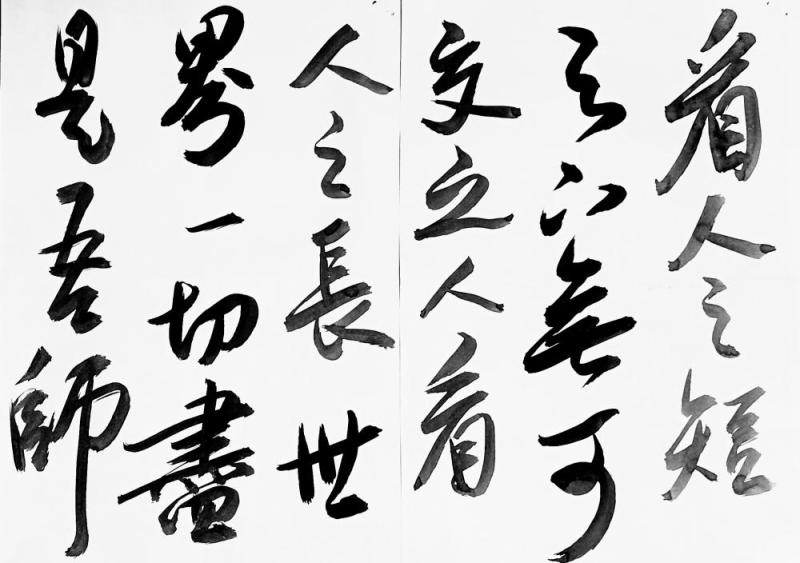 看人之短
天下無可
交之人看
人之長世
界一切盡
是吾師